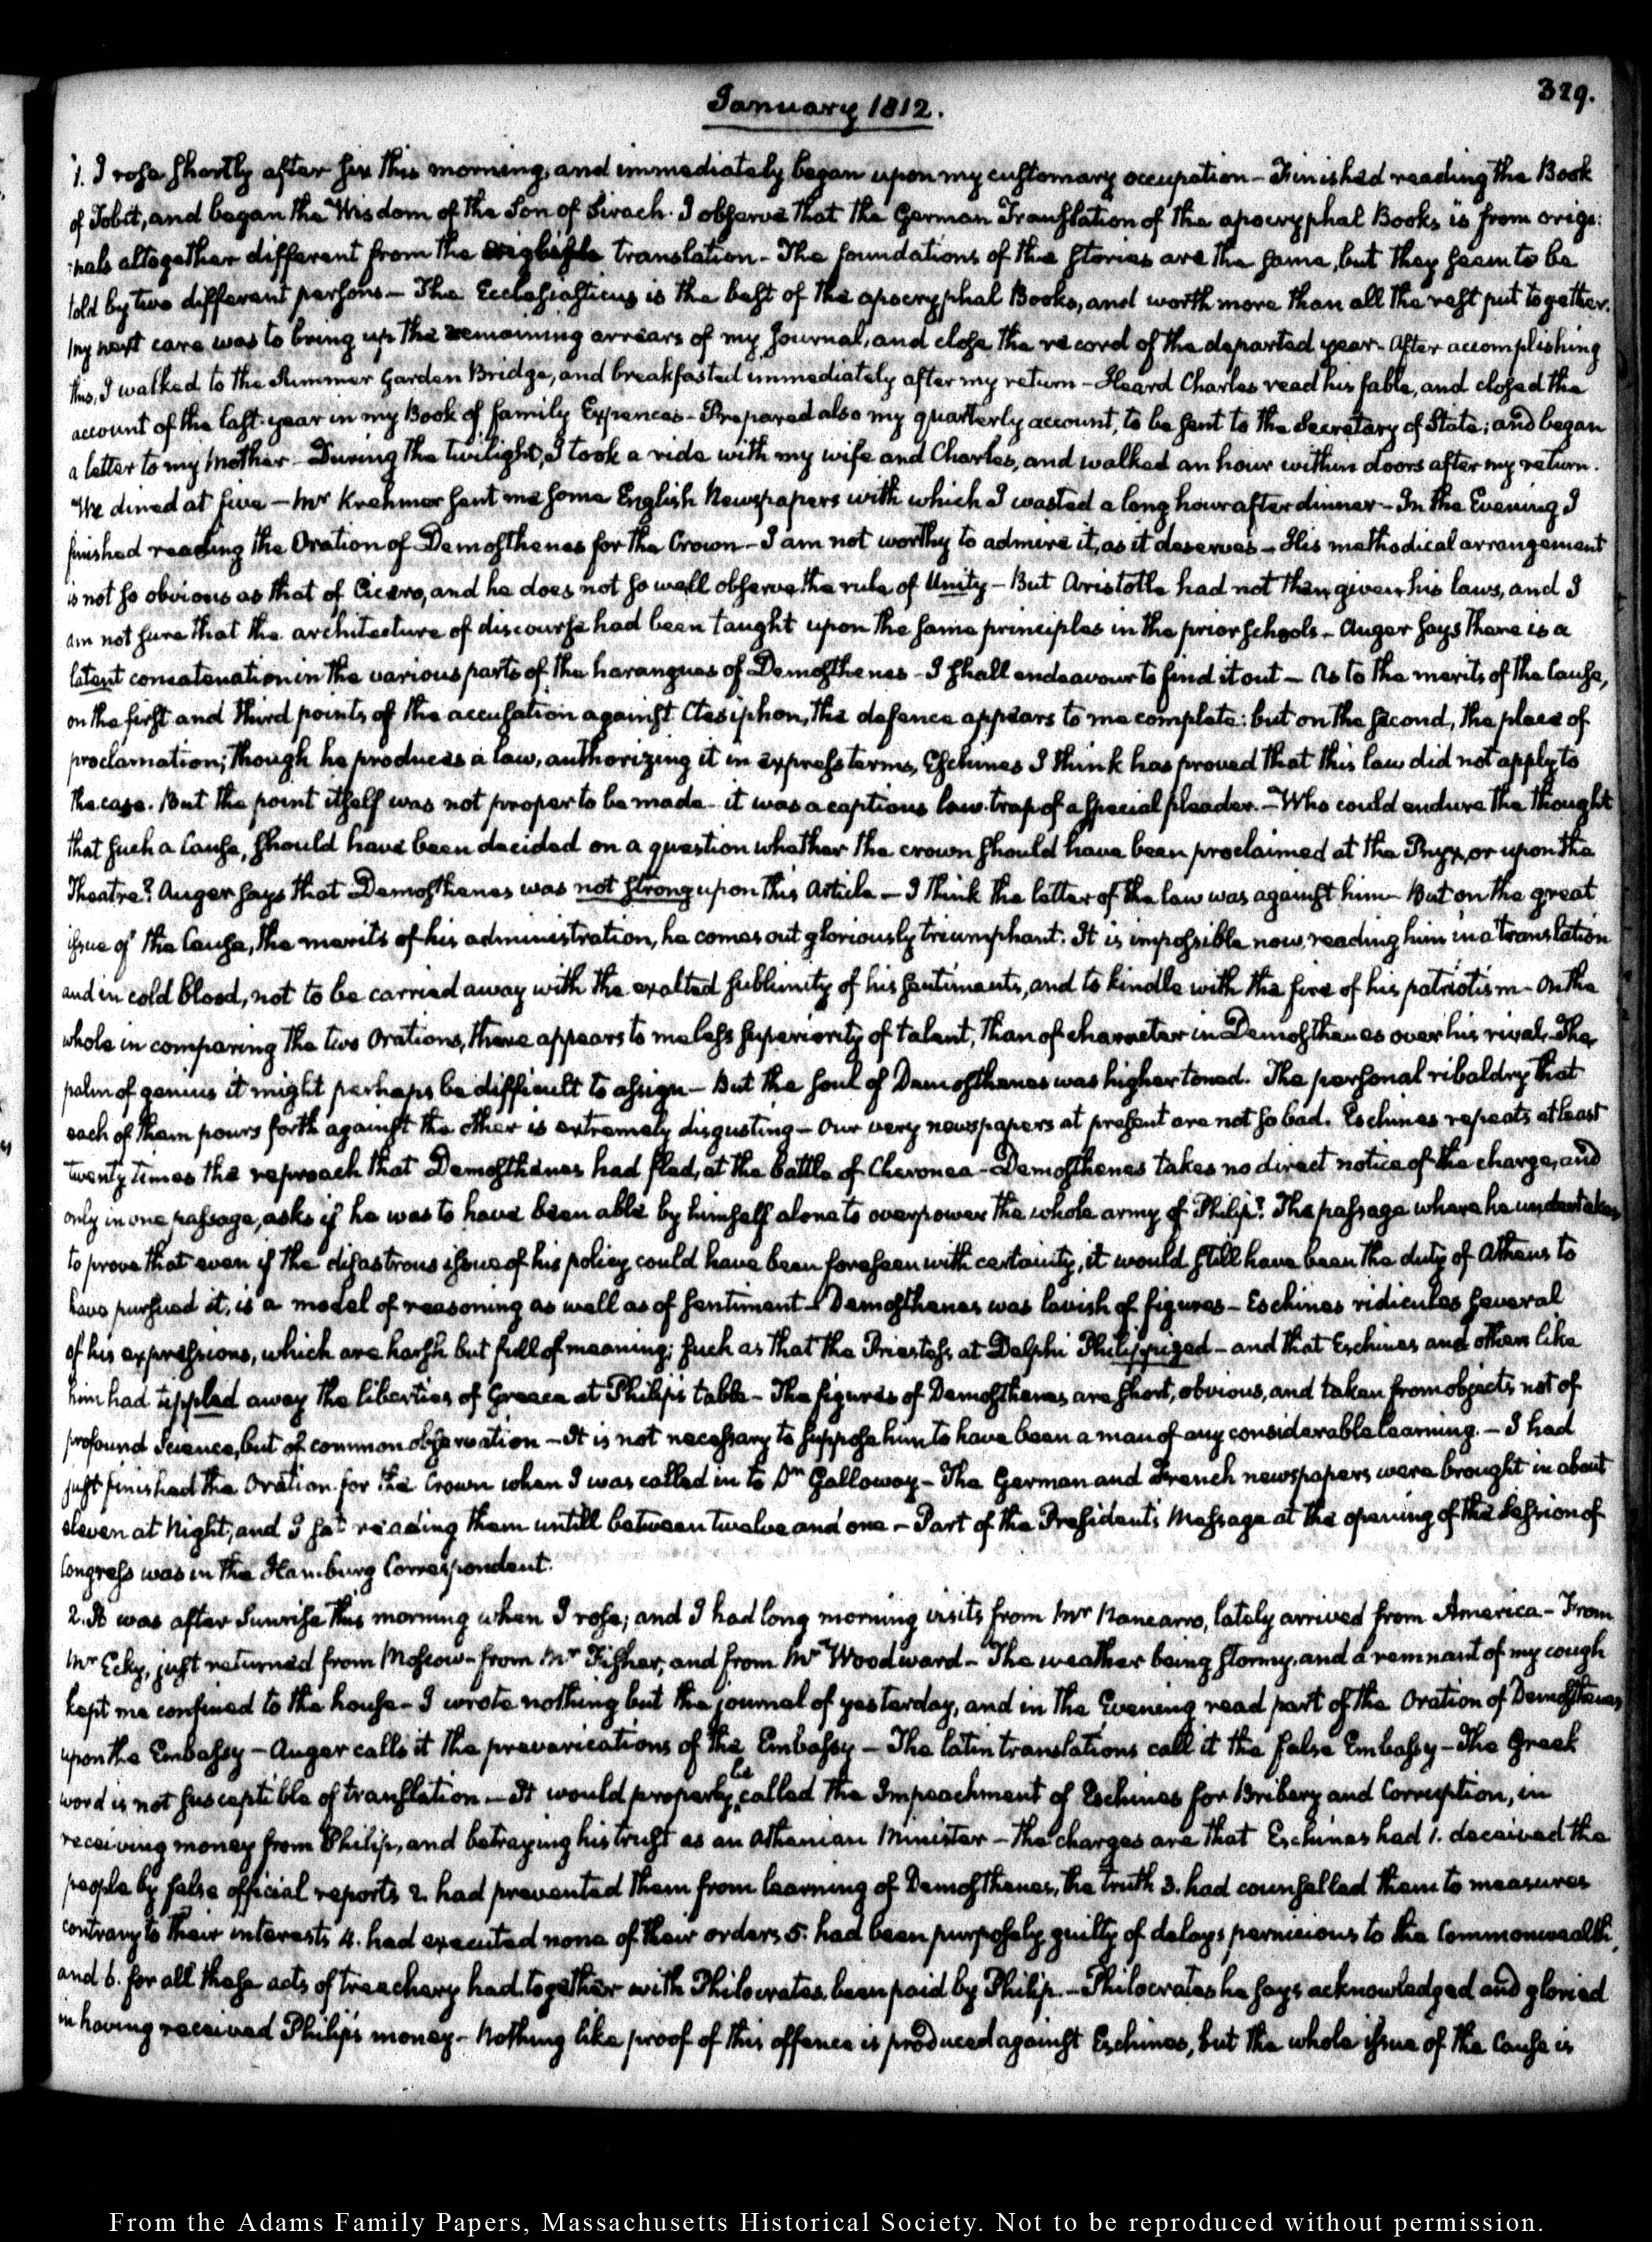 January 1812.
329.
1. I rose shortly after six this morning, and immediately began upon my customary occupation – Finished reading the Book
of Tobit, and began the Wisdom of the Son of Sirach. I observe that the German Translation of the apocryphal Books is from origi:
:nals altogether different from the translation – The foundations of the stories are the same, but they seem to be
told by two different persons – The Ecclesiasticus is the best of the apocryphal Books, and worth more than all the rest put together.
My next care was to bring up the remaining arrears of my Journal, and close the record of the departed year – After accomplishing
this, I walked to the Summer Garden Bridge, and breakfasted immediately after my return – Heard Charles read his fable, and closed the
account of the last year in my Book of family Expences – Prepared also my quarterly account, to be sent to the Secretary of State; and began
a letter to my Mother – During the twilight, I took a ride with my wife and Charles, and walked an hour within doors after my return.
We dined at five – Mr Krehmer sent me some English Newspapers with which I wasted a long hour after dinner – In the Evening I
finished reading the Oration of Demosthenes for the Crown – I am not worthy to admire it, as it deserves – His methodical arrangement
is not so obvious as that of Cicero, and he does not so well observe the rule of Unity – But Aristotle had not then given his laws, and I
am not sure that the architecture of discourse had been taught upon the same principles in the prior schools – Auger says there is a
latent concatenation in the various parts of the harangues of Demosthenes – I shall endeavour to find it out – As to the merits of the Cause,
on the first and third points of the accusation against Ctesiphon, the defence appears to me complete: but on the second, the place of
proclamation; though he produces a law, authorizing it in express terms, Eschines I think has proved that this law did not apply to
the case. But the point itself was not proper to be made – it was a captious law-trap of a special pleader. – Who could endure the thought
that such a Cause, should have been decided on a question whether the crown should have been proclaimed at the Pnyx, or upon the
Theatre? Auger says that Demosthenes was not strong upon this Article – I think the letter of the law was against him – But on the great
issue of the Cause, the merits of his administration, he comes out gloriously triumphant. It is impossible now, reading him in a translation
and in cold blood, not to be carried away with the exalted sublimity of his sentiments, and to kindle with the fire of his patriotism – On the
whole in comparing the two Orations, there appears to me less superiority of talent, than of character in Demosthenes over his rival. The
palm of genius it might perhaps be difficult to assign – But the soul of Demosthenes was higher toned. The personal ribaldry that
each of them pours forth against the other is extremely disgusting – Our very newspapers at present are not so bad. Eschines repeats at least
twenty times the reproach that Demosthenes had fled, at the battle of Cheronea – Demosthenes takes no direct notice of the charge, and
only in one passage, asks if he was to have been able by himself alone to overpower the whole army of Philip? The passage where he undertakes
to prove that even if the disastrous issue of his policy could have been foreseen with certainty, it would still have been the duty of Athens to
have pursued it, is a model of reasoning as well as of sentiment – Demosthenes was lavish of figures – Eschines ridicules several
of his expressions, which are harsh but full of meaning; such as that the Priestess at Delphi Philippized – and that Eschines and others like
him had tippled away the liberties of Greece at Philip's table – The figures of Demosthenes are short, obvious, and taken from objects not of
profound Science, but of common observation – It is not necessary to suppose him to have been a man of any considerable learning. – I had
just finished the Oration for the Crown when I was called in to Dr Galloway – The German and French newspapers were brought in about
eleven at Night, and I sat reading them untill between twelve and one – Part of the President's Message at the opening of the Session of
Congress was in the Hamburg Correspondent.
2. It was after Sunrise this morning when I rose; and I had long morning visits from Mr Nancarro, lately arrived from America – From
Mr Ecky, just returned from Moscow – from Mr Fisher, and from Mr Woodward – The weather being stormy, and a remnant of my cough
kept me confined to the house – I wrote nothing but the journal of yesterday, and in the Evening read part of the Oration of Demosthenes
upon the Embassy – Auger calls it the prevarications of the Embassy – The latin translations call it the false Embassy – The Greek
word is not susceptible of translation – It would properly be called the Impeachment of Eschines for Bribery and Corruption, in
receiving money from Philip, and betraying his trust as an Athenian Minister – The charges are that Eschines had 1. deceived the
people by false official reports 2. had prevented them from learning of Demosthenes, the truth 3. had counselled them to measures
contrary to their interests 4. had executed none of their orders 5. had been purposely guilty of delays pernicious to the Commonwealth,
and 6. for all these acts of treachery had, together with Philocrates, been paid by Philip. – Philocrates he says acknowledged and gloried
in having received Philip's money – Nothing like proof of this offence is produced against Eschines, but the whole issue of the Cause is
From the Adams Family Papers, Massachusetts Historical Society. Not to be reproduced without permission.